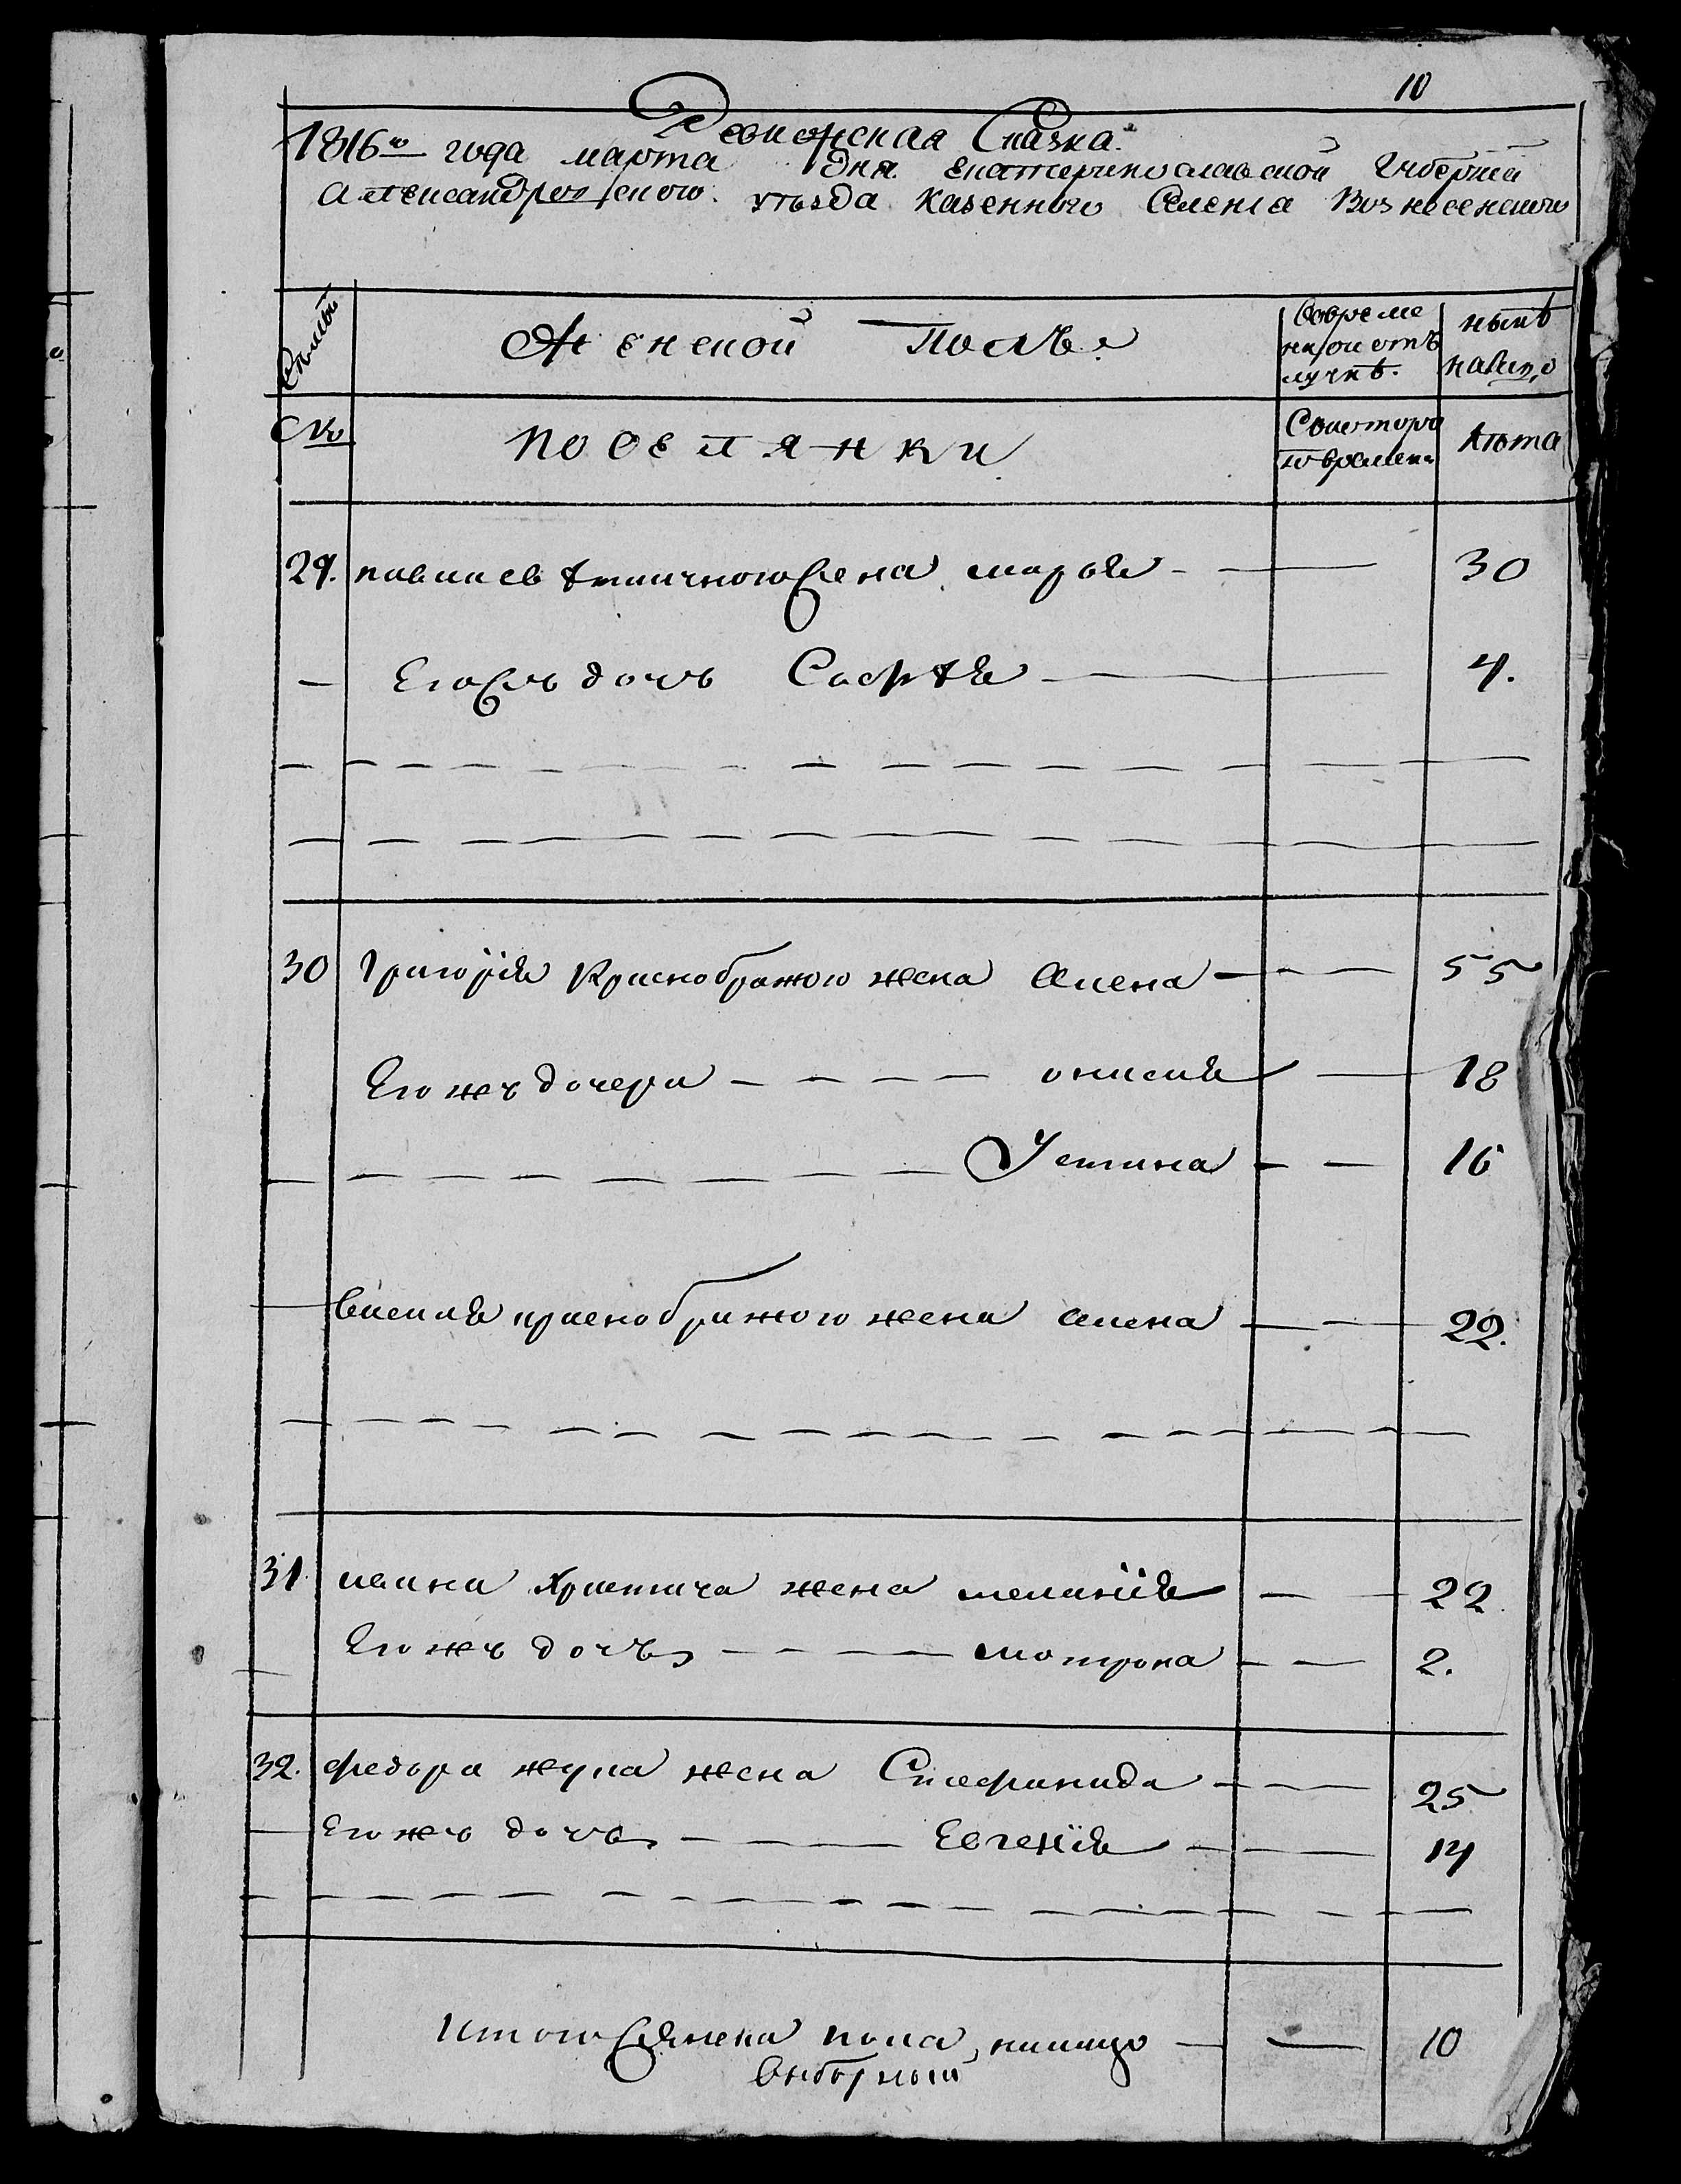 10
Ревижская Сказка.
1816го года марта дня Екатеринославской Губернїи
Александровского уѣзда Казенного Селенїя Вознесенского
Семьи Женской Полъ. Во време нной отъ лучкѣ. нынѣ налицо
№ поселянки С которо го времени Лѣта
29. жена марья 30
Его жъ дочь Софья 4.
30 Григорїя Краснобрижого жена Елена 55
Его жъ дочери онисия 18
Устина 16
Василя краснобрижого жена елена 22.
31 ивана Христича жена меланїя 22
Его жъ дочъ мотрона 2.
32. федора жука жена Стефанида 25
Его жъ дочь Евгенїя 14
Итого женска пола налицо 10
выборный